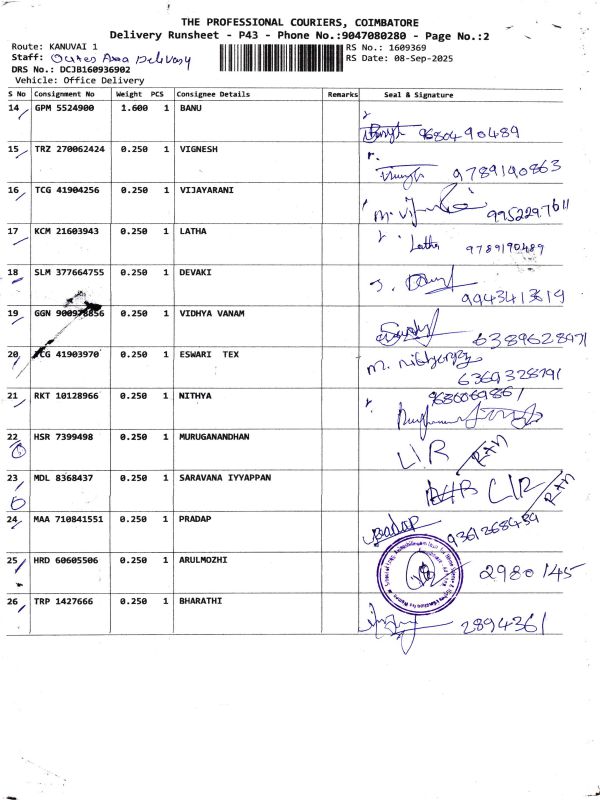 THE PROFESSIONAL COURIERS, COIMBATORE
Delivery Runsheet - P43 - Phone No.:9047080280 - Page No.:2
Route: KANUVAI 1 RS No.: 1609369
Staff: Outer Area Delivery RS Date: 08-Sep-2025
DRS No.: DCJB160936902
Vehicle: Office Delivery
S No Consignment No Weight PCS Consignee Details Remarks Seal & Signature
14 GPM 5524900 1.600 1 BANU 9680490489
15 TRZ 270062424 0.250 1 VIGNESH 9789190863
16 TCG 41904256 0.250 1 VIJAYARANI 9952297611
17 KCM 21603943 0.250 1 LATHA Latha 9789190489
18 SLM 377664755 0.250 1 DEVAKI 9943413619
19 GGN 900978856 0.250 1 VIDHYA VANAM 6389628971
20 TCG 41903970 0.250 1 ESWARI TEX 6369328791
21 RKT 10128966 0.250 1 NITHYA
22 HSR 7399498 0.250 1 MURUGANANDHAN L/R
23 MDL 8368437 0.250 1 SARAVANA IYYAPPAN L/R
24 MAA 710841551 0.250 1 PRADAP 9361268459
25 HRD 60605506 0.250 1 ARULMOZHI 2980145
26 TRP 1427666 0.250 1 BHARATHI 2894361